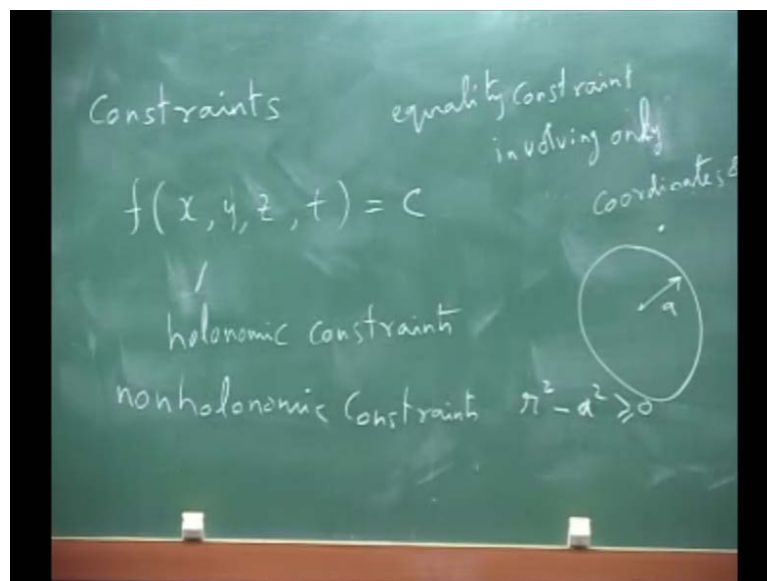 Constraints
equality constraint
involving only
coordinates &
f(x, y, z, t) = C
holonomic constraint
a
nonholonomic Constraint r² - a² ≥ 0